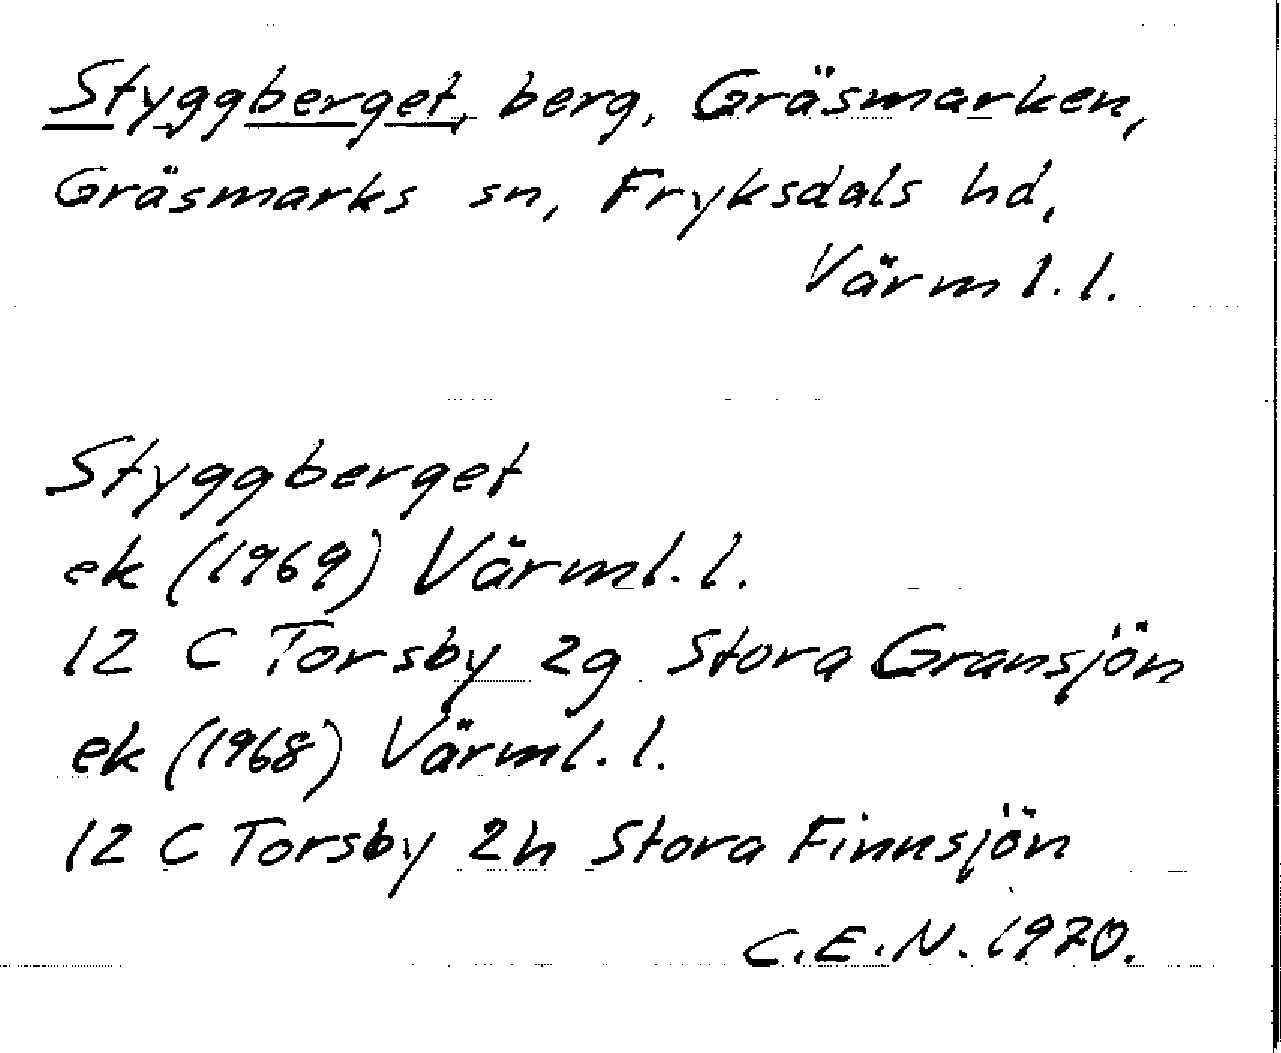 Styggberget, berg, Gräsmarken,
Gräsmarks sn, Fryksdals hd,
Värml.l.
Styggberget
ek (1969) Värml.l.
12 C Torsby 2g Stora Gransjön
ek (1968) Värml.l.
12 C Torsby 2h Stora Finnsjön
C.E.N. 1970.